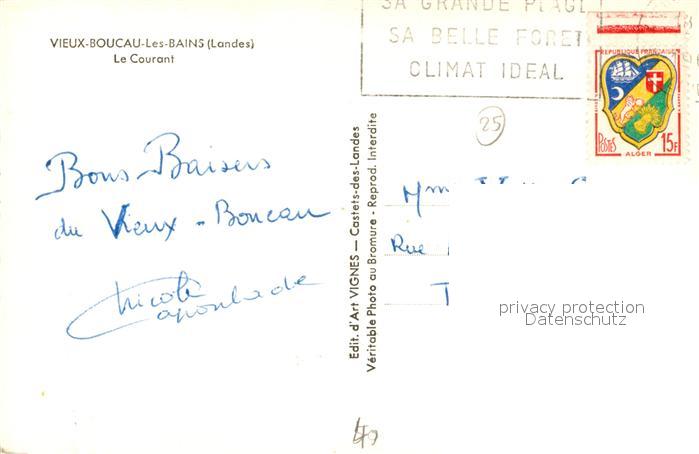 VIEUX-BOUCAU-Les-BAINS (Landes)
Le Courant
SA GRANDE PLAGE
SA BELLE FORET
CLIMAT IDEAL
REPUBLIQUE FRANÇAISE
POSTES
15F
ALGER
25
Bons Baisers
du Vieux-Boucau
Nicole
Edit. d'Art VIGNES — Castets-des-Landes
Véritable Photo au Bromure - Reprod. Interdite
Mme
Rue
T
privacy protection
Datenschutz